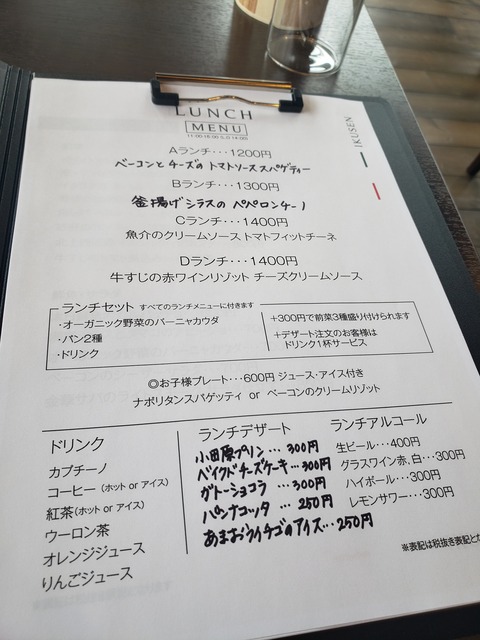 LUNCH
MENU
IKUSEN
Aランチ･･･1200円
ベーコンとチーズのトマトソーススパゲティー
Bランチ･･･1300円
釜揚げシラスのペペロンチーノ
Cランチ･･･1400円
魚介のクリームソース トマトフィットチーネ
Dランチ･･･1400円
牛すじの赤ワインリゾット チーズクリームソース
ランチセット すべてのランチメニューに付きます
･オーガニック野菜のバーニャカウダ
･パン2種
･ドリンク
+300円で前菜3種盛り付けられます
+デザート注文のお客様は
ドリンク1杯サービス
◎お子様プレート･･･600円 ジュース･アイス付き
ナポリタンスパゲッティ or ベーコンのクリームリゾット
ドリンク
カプチーノ
コーヒー (ホット or アイス)
紅茶(ホット or アイス)
ウーロン茶
オレンジジュース
りんごジュース
ランチデザート
小田原プリン･･･300円
ベイクドチーズケーキ･･･300円
ガトーショコラ･･･300円
パンナコッタ･･･250円
あまおうイチゴのアイス･･･250円
ランチアルコール
生ビール･･･400円
グラスワイン赤,白･･･300円
ハイボール･･･300円
レモンサワー･･･300円
※表記は税抜き表記とな